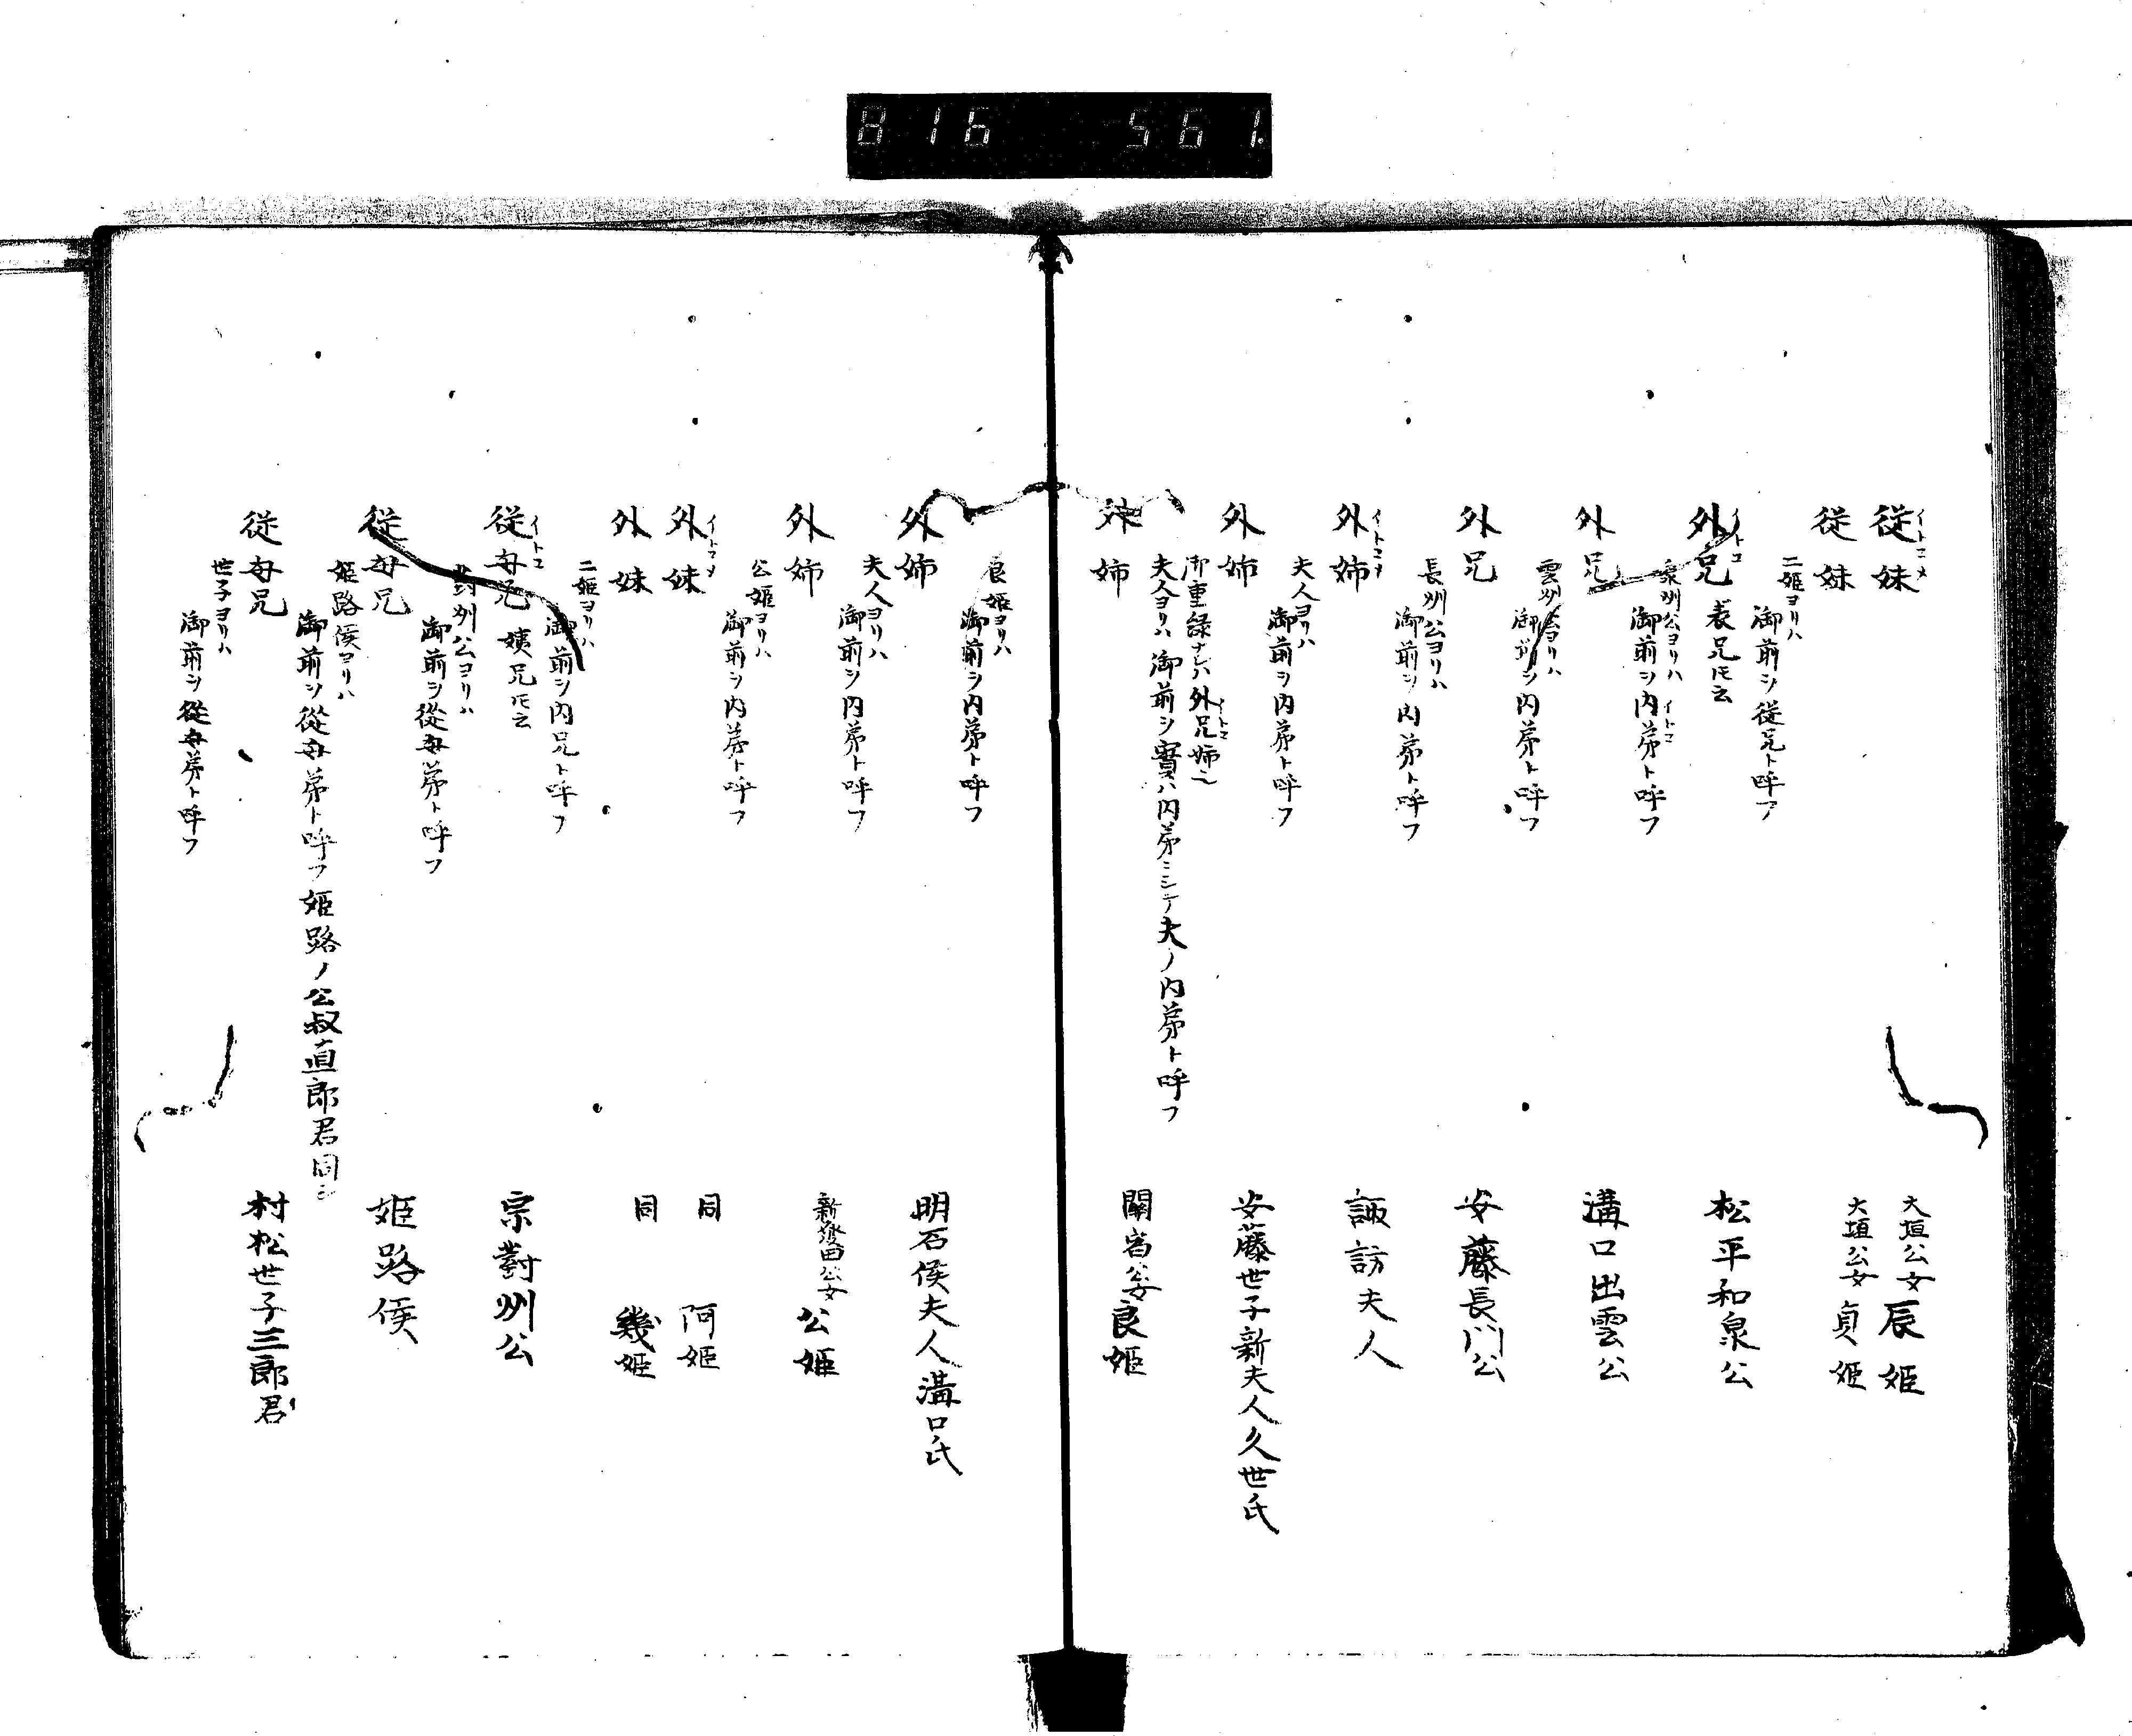 816 561.
従妹 イトコメ 大垣公女 辰姫
従妹 大垣公女 貞姫
二姫ヨリハ
御前ヲ従兄ト呼フ
外兄 イトコ 表兄トモ云 松平和泉公
泉州公ヨリハ
御前ヲ内弟ト呼フ イトコ
外兄 溝口出雲公
雲州公ヨリハ
御前ヲ内弟ト呼フ
外兄 安藤長門公
長州公ヨリハ
御前ヲ内弟ト呼フ
外姉 イトコメ 諏訪夫人
夫人ヨリハ
御前ヲ内弟ト呼フ
外姉 安藤世子新夫人久世氏
御重縁ナレハ外兄姉 イトコ
夫人ヨリハ御前ヲ實ハ内弟ニシテ夫ノ内弟ト呼フ
外姉 關宿公女 良姫
良姫ヨリハ
御前ヲ内弟ト呼フ
外姉 明石侯夫人溝口氏
夫人ヨリハ
御前ヲ内弟ト呼フ
外姉 新發田公女 公姫
公姫ヨリハ
御前ヲ内弟ト呼フ
外妹 イトコメ 同 阿姫
外妹 同 幾姫
二姫ヨリハ
御前ヲ内兄ト呼フ
従母兄 イトコ 姨兄トモ云 宗對州公
對州公ヨリハ
御前ヲ從母弟ト呼フ
従母兄 姫路侯
姫路侯ヨリハ
御前ヲ從母弟ト呼フ姫路ノ公叔直郎君同シ
従母兄 村松世子三郎君
世子ヨリハ
御前ヲ從母弟ト呼フ